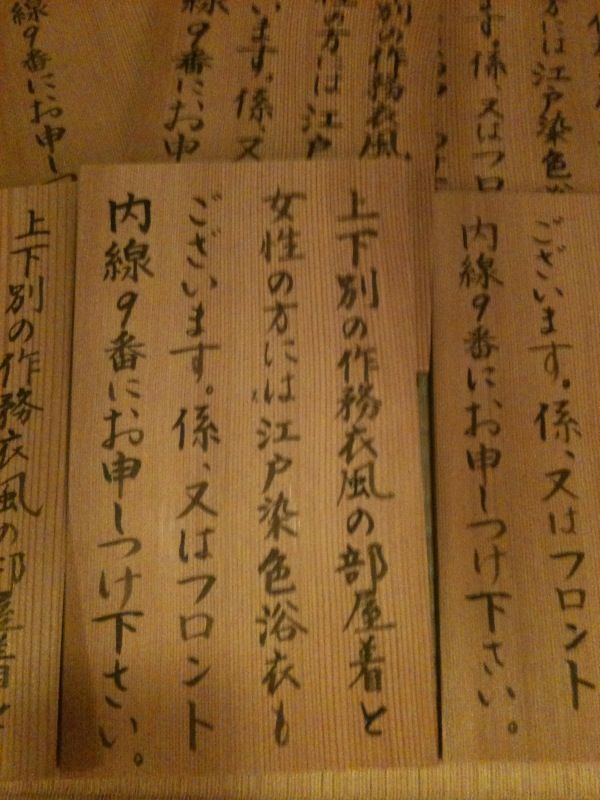 上下別の作務衣風の部屋着と
女性の方には江戸染色浴衣も
ございます。係、又はフロント
内線9番にお申しつけ下さい。
ございます。係、又はフロント
内線9番にお申しつけ下さい。
上下別の作務衣風の部屋着と
別の作務衣風
の方には江戸
ざいます。係、又
線9番にお申
線9番にお申しつ
方には江戸染色浴
います。係、又はフロ